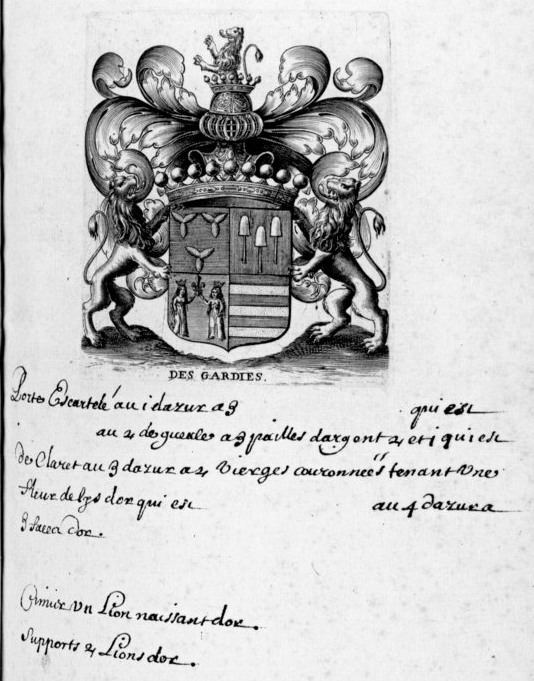 DES GARDIES.
Porte Escartelé au 1 dazur a 3 qui est
au 2 de gueule a 3 pailles dargent 2 et 1 qui est
de Claret au 3 dazur a 2 Vierges couronneés tenant Une
fleur de lys dor qui est au 4 dazur a
3 fasea dor.
Cimier Un Lion naissant dor.
Supports 2 Lions dor.